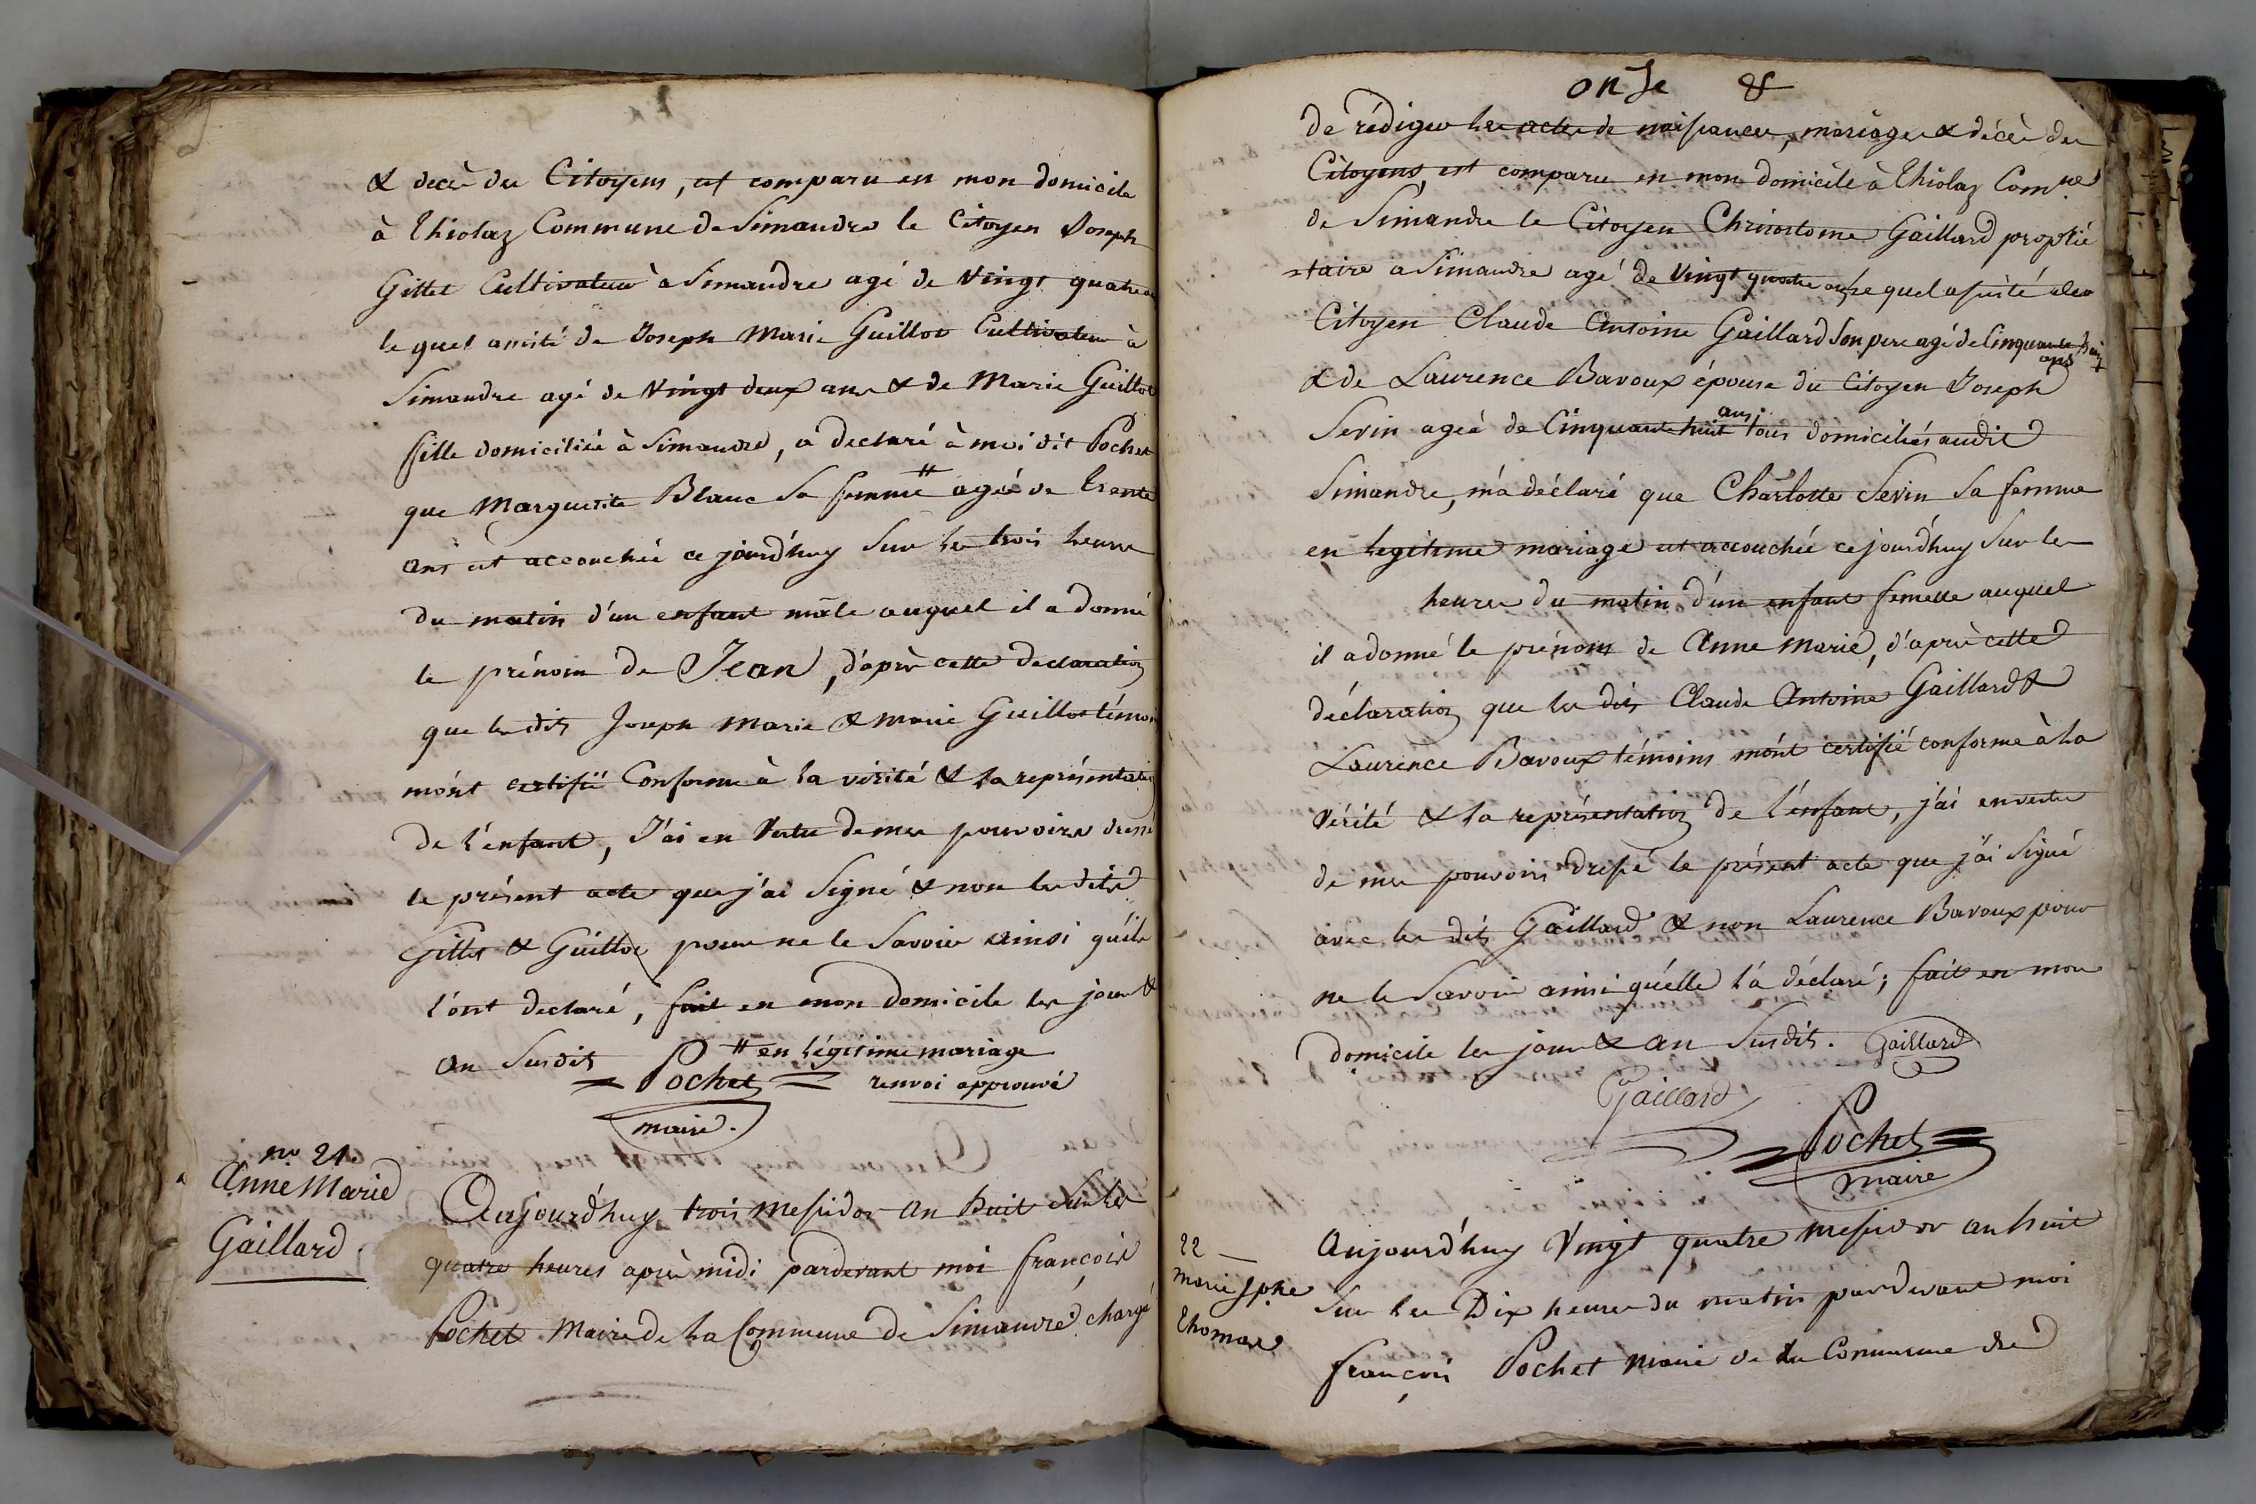 & decès des Citoyens, est comparu en mon domicile
à Thiolaz Commune de Simandre le Citoyen Joseph
Gillet Cultivateur à Simandre agé de Vingt quatre
le quel assisté de Joseph Marie Guillot Cultivateur à
Simandre agé de Vingt deux ans & de Marie Guillot
fille domiciliée à Simandre, a declaré à moi dit Pochet
que Marguerite Blanc sa femme # agée de trente
ans est accouchée ce jourd'huy sur les trois heures
du matin d'un enfant mâle auquel il a donné
le prénom de Jean, d'après cette declaration
que les dits Joseph Marie & Marie Guillot témoins
m'ont certifié Conforme à la vérité & la représentation
de l'enfant, J'ai en Vertu de mes pouvoirs dressé
le présent acte que j'ai Signé & non les dits
Gillet & Guillot pour ne le Savoir ainsi qu'ils
l'ont declaré, fait en mon domicile les jour &
an Susdits
# en légitime mariage
renvoi approuvé
Pochet
maire.
no. 21.
Anne Marie
Gaillard
Aujourd'huy trois messidor an huit sur les
quatre heures après midi pardevant moi françois
Pochet Maire de la Commune de Simandre chargé
onze &
de rédiger les actes de naissances, mariages & décès des
Citoyens, est comparu en mon domicile à Thiolaz Comne
de Simandre le Citoyen Chrisostome Gaillard proprié
-taire a Simandre agé de Vingt quatre ans le quel assisté du
Citoyen Claude Antoine Gaillard Son pere agé de Cinquante huit
ans
& de Laurence Bavoux épouse du Citoyen Joseph
Sevin ageé de Cinquante huit ans tous domiciliés audit
Simandre, m'a déclaré que Charlotte Sevin Sa femme
en legitime mariage est accouchée ce jourd'huy Sur les
heures du matin d'un enfant femelle auquel
il a donné le prénom de Anne Marie, d'après cette
déclaration que les dits Claude Antoine Gaillard &
Laurence Bavoux témoins m'ont certifié conforme à la
Vérité & la représentation de l'enfant, j'ai en vertu
de mes pouvoirs dressé le présent acte que j'ai Signé
avec les dits Gaillard & non Laurence Bavoux pour
ne le Savoir ainsi qu'elle l'a déclaré; fait en mon
domicile les jour & an Susdits. Gaillard
Gaillard
Pochet
maire
22
Marie Jphe
Thomas
Aujourd'huy Vingt quatre Messidor an huit
Sur les Dix heures du matin pardevant moi
françois Pochet Maire de la Commune de